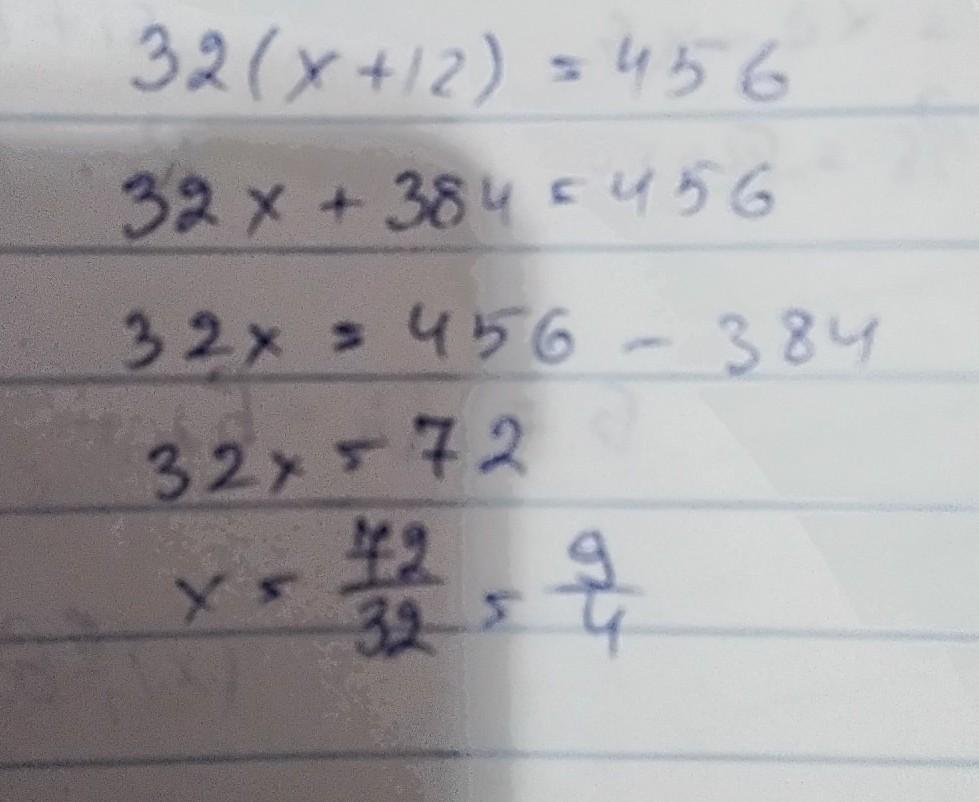 32(x+12) = 456
32x + 384 = 456
32x = 456 - 384
32x = 72
x = 72/32 = 9/4